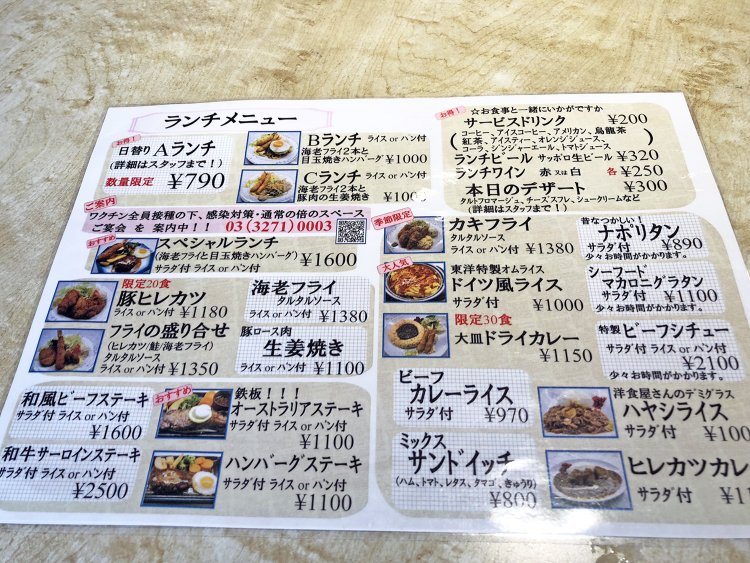 ランチメニュー
お得!
日替りAランチ
(詳細はスタッフまで!)
数量限定 ¥790
Bランチ ライス or パン付
海老フライ2本と
目玉焼きハンバーグ ¥1000
Cランチ ライス or パン付
海老フライ2本と
豚肉の生姜焼き
ご案内
ワクチン全員接種の下、感染対策・通常の倍のスペース
ご宴会 を 案内中!! 03(3271)0003
おすすめ
スペシャルランチ
(海老フライと目玉焼きハンバーグ)
サラダ付 ライス or パン付 ¥1600
限定20食
豚ヒレカツ
ライス or パン付 ¥1180
海老フライ
タルタルソース
ライス or パン付 ¥1380
フライの盛り合せ
(ヒレカツ/鮭/海老フライ)
タルタルソース
ライス or パン付 ¥1350
豚ロース肉
生姜焼き
ライス or パン付 ¥1100
和風ビーフステーキ
サラダ付 ライス or パン付
¥1600
おすすめ
鉄板!!!
オーストラリアステーキ
サラダ付 ライス or パン付
¥1100
和牛サーロインステーキ
サラダ付 ライス or パン付
¥2500
ハンバーグステーキ
サラダ付 ライス or パン付
¥1100
お得!
☆お食事と一緒にいかがですか
サービスドリンク ¥200
(コーヒー、アイスコーヒー、アメリカン、烏龍茶
紅茶、アイスティー、オレンジジュース、
コーラ、ジンジャーエール、トマトジュース)
ランチビール サッポロ生ビール ¥320
ランチワイン 赤 又は 白 各¥250
本日のデザート ¥300
(タルトフロマージュ、チーズスフレ、シュークリームなど
(詳細はスタッフまで!)
季節限定
カキフライ
タルタルソース
ライス or パン付 ¥1380
昔なつかしい!
ナポリタン
サラダ付 ¥890
少々お時間がかかります。
大人気
東洋特製オムライス
ドイツ風ライス
サラダ付 ¥1000
シーフード
マカロニグラタン
サラダ付 ¥1100
少々お時間がかかります。
限定30食
大皿ドライカレー
¥1150
特製 ビーフシチュー
サラダ付 ライス or パン付
¥2100
少々お時間がかかります。
ビーフ
カレーライス
サラダ付 ¥970
洋食屋さんのデミグラス
ハヤシライス
サラダ付
ミックス
サンドイッチ
(ハム、トマト、レタス、タマゴ、きゅうり)
¥800
ヒレカツカレ
サラダ付